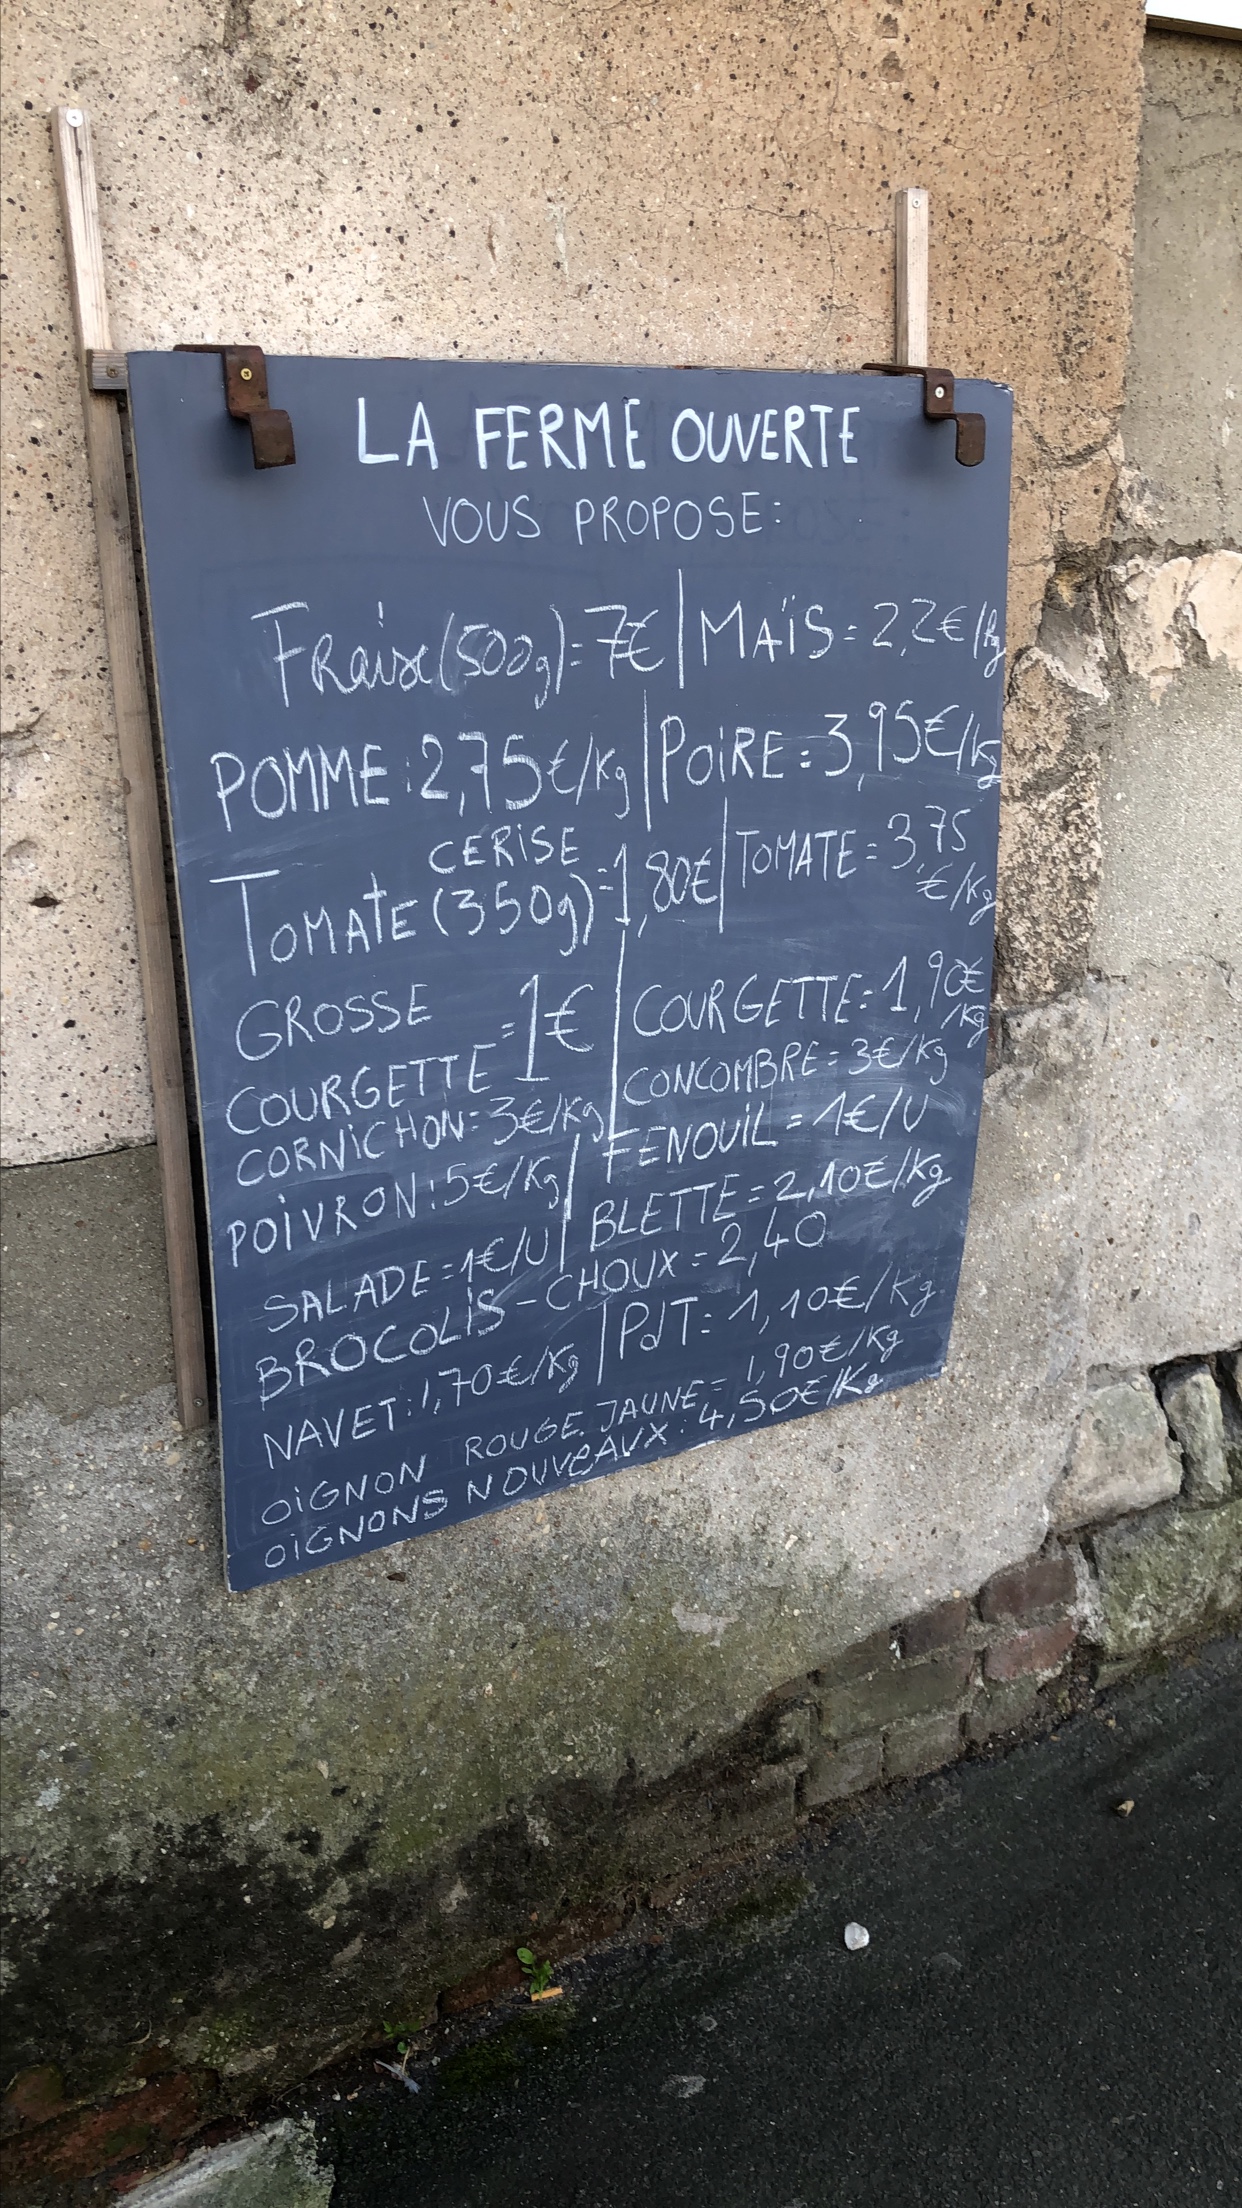 LA FERME OUVERTE
VOUS PROPOSE:
Fraise (500g) = 7€ | MAÏS = 2,2€/Kg
POMME : 2,75€/Kg | POIRE = 3,95€/Kg
CERISE
TOMATE (350g) = 1,80€ | TOMATE = 3,75
€/Kg
GROSSE
COURGETTE = 1€ | COURGETTE = 1,90€
/Kg
CORNICHON = 3€/Kg | CONCOMBRE = 3€/Kg
POIVRON : 5€/Kg | FENOUIL = 1€/U
SALADE = 1€/U | BLETTE = 2,10€/Kg
BROCOLIS - CHOUX = 2,40
NAVET : 1,70€/Kg | PdT : 1,10€/Kg
OIGNON ROUGE. JAUNE = 1,90€/Kg
OIGNONS NOUVEAUX : 4,50€/Kg